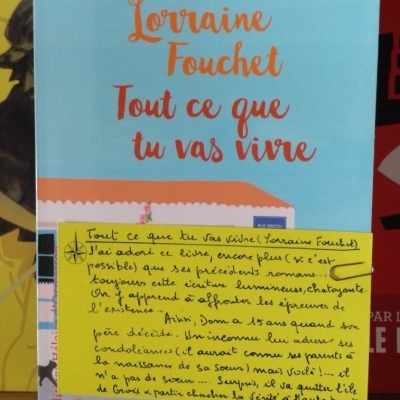 Lorraine
Fouchet
Tout ce que
tu vas vivre
Tout ce que tu vas vivre (Lorraine Fouchet)
J'ai adoré ce livre, encore plus (si c'est
possible) que ses précédents romans...
toujours cette écriture lumineuse, chatoyante.
On y apprend à affronter les épreuves de
l'existence.
Ainsi, Dom a 15 ans quand son
père décède. Un inconnu lui adresse ses
condoléances (il aurait connu ses parents à
la naissance de sa sœur) mais voilà!... il
n'a pas de sœur.... Surpris, il va quitter l'île
de Groix & partir chercher la vérité à
PAR L
LE